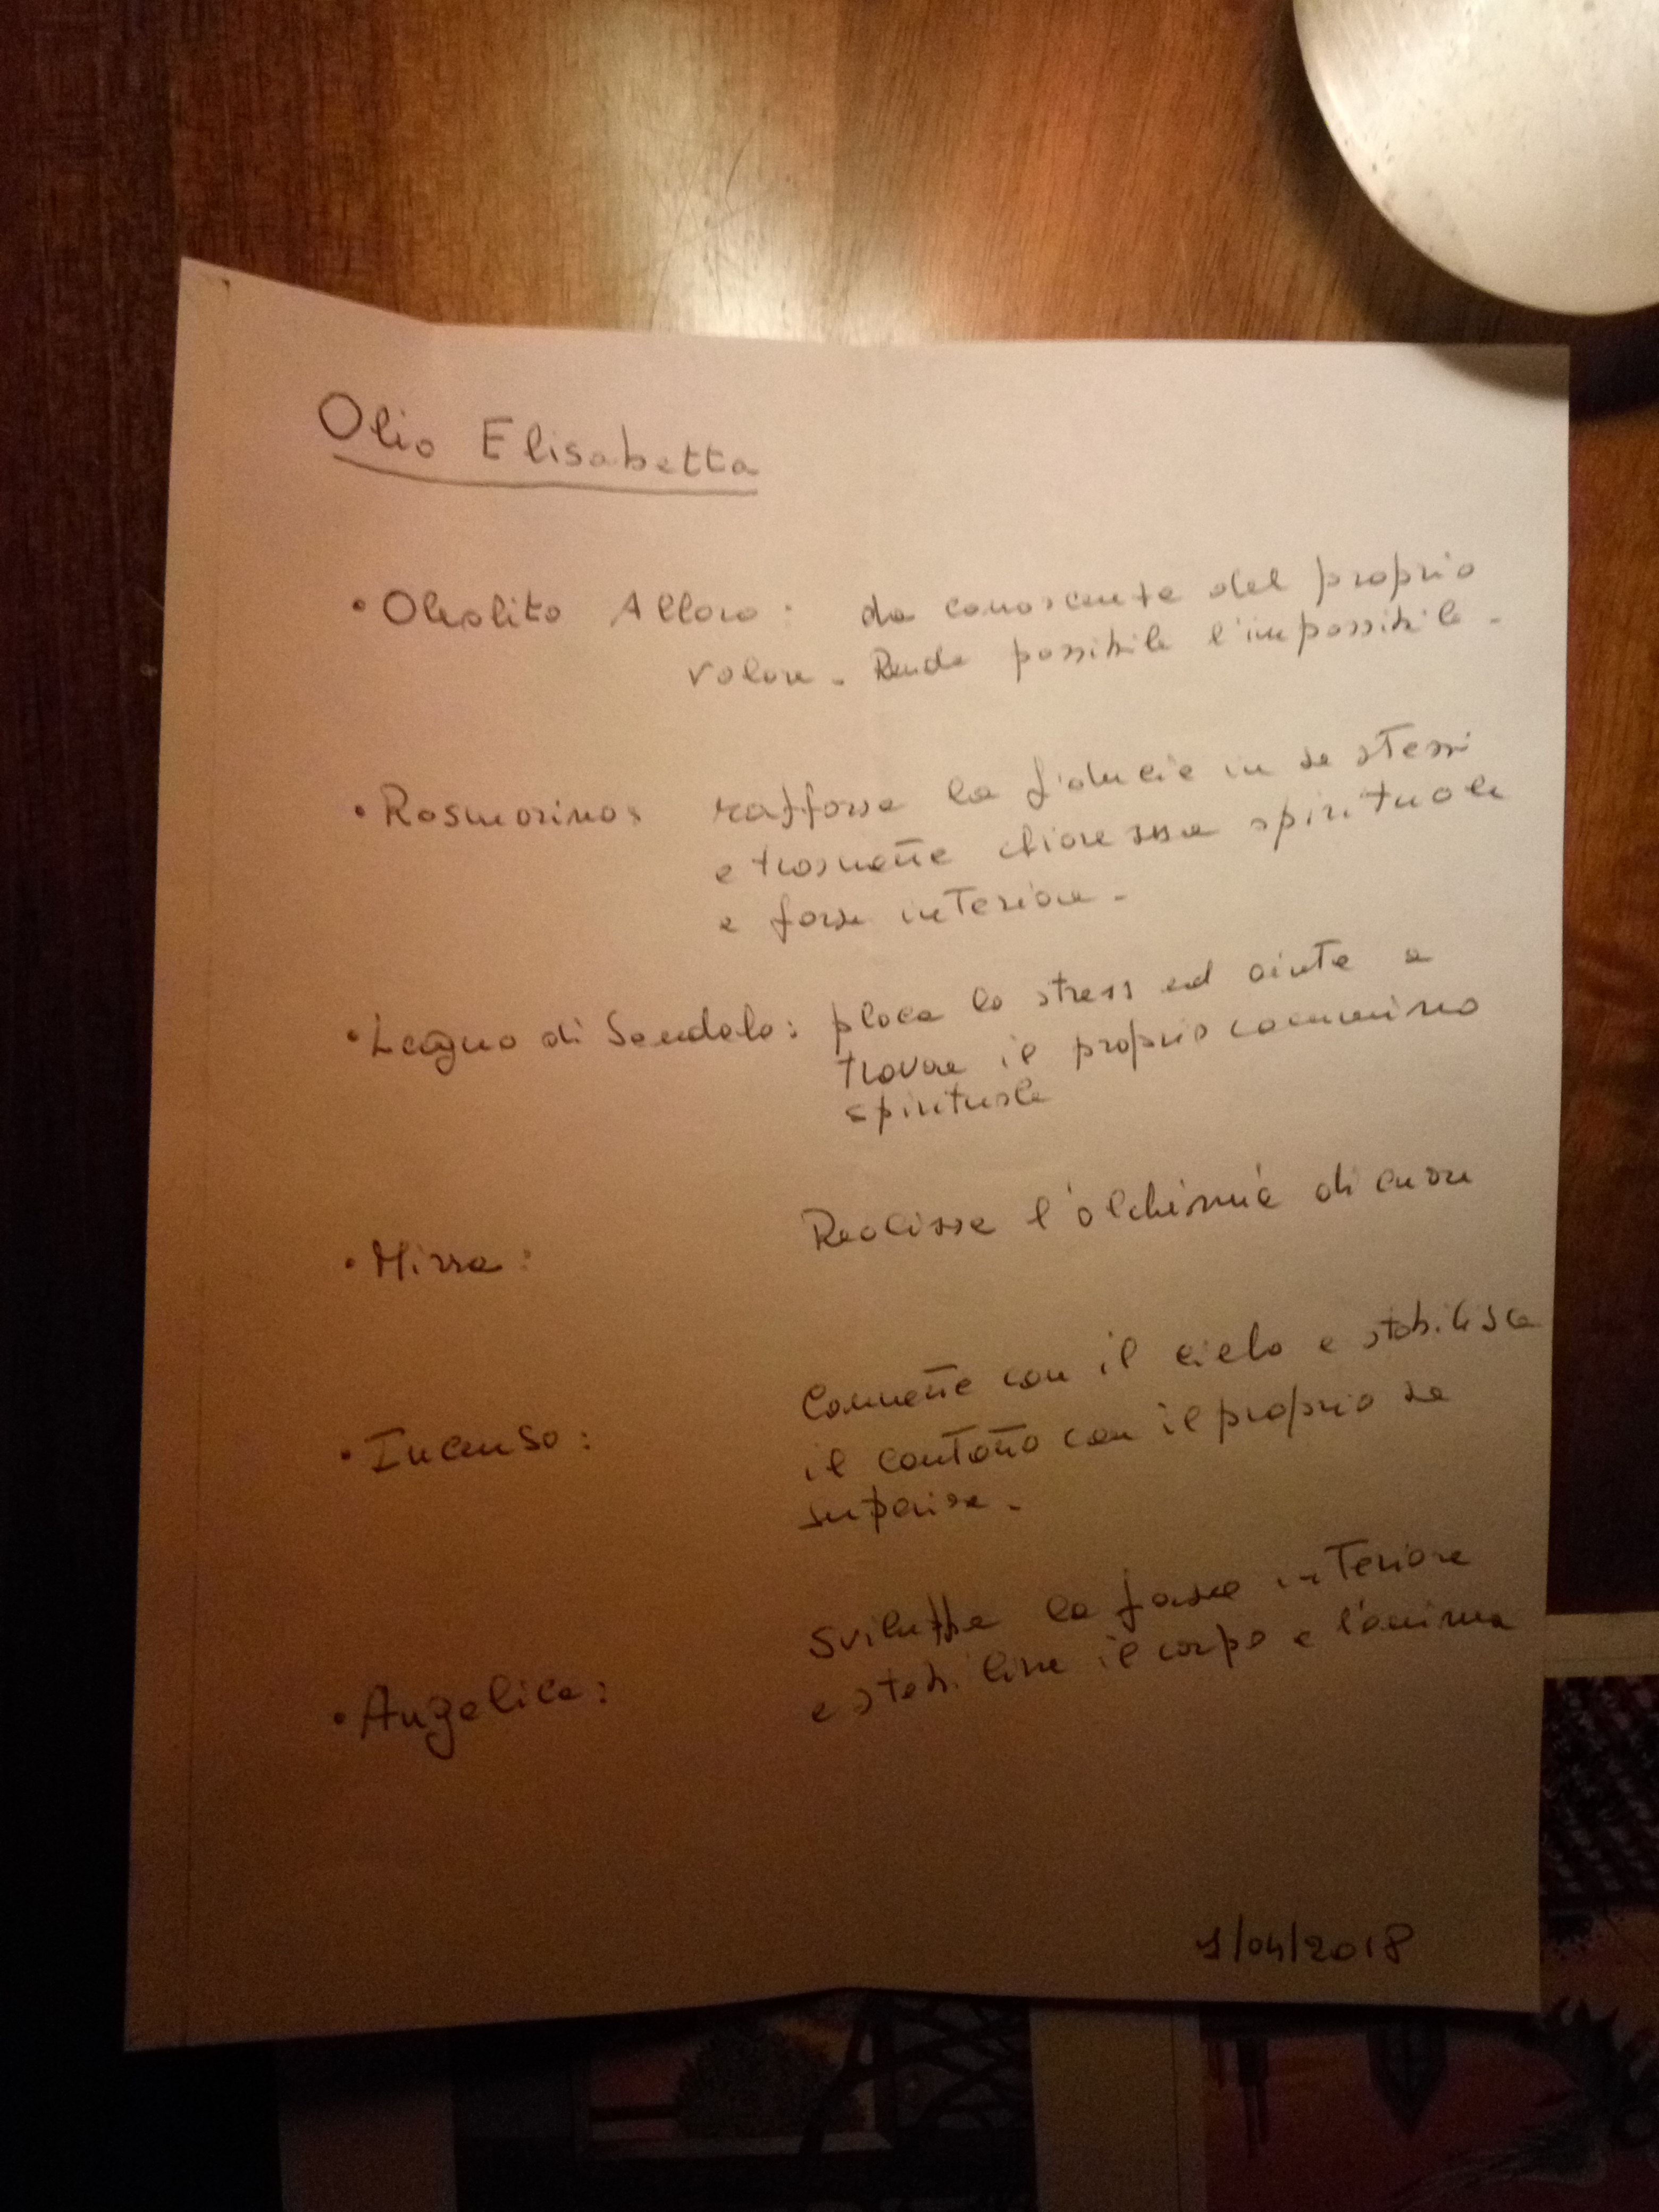 Olio Elisabetta
• Oleolito Alloro: da conoscente del proprio
valore - Rende possibile l'impossibile -
• Rosmarino: rafforza la fiducia in se stessi
e trasmette chiarezza spirituale
e forza interiore -
• Legno di Sandalo: placa lo stress ed aiuta a
trovare il proprio cammino
spirituale
• Mirra: Realizza l'alchimia di cuore
• Incenso: Connette con il cielo e stabilisce
il contatto con il proprio se
superiore -
• Angelica: Sviluppa la forza interiore
e stabilizza il corpo e l'anima
1/04/2018